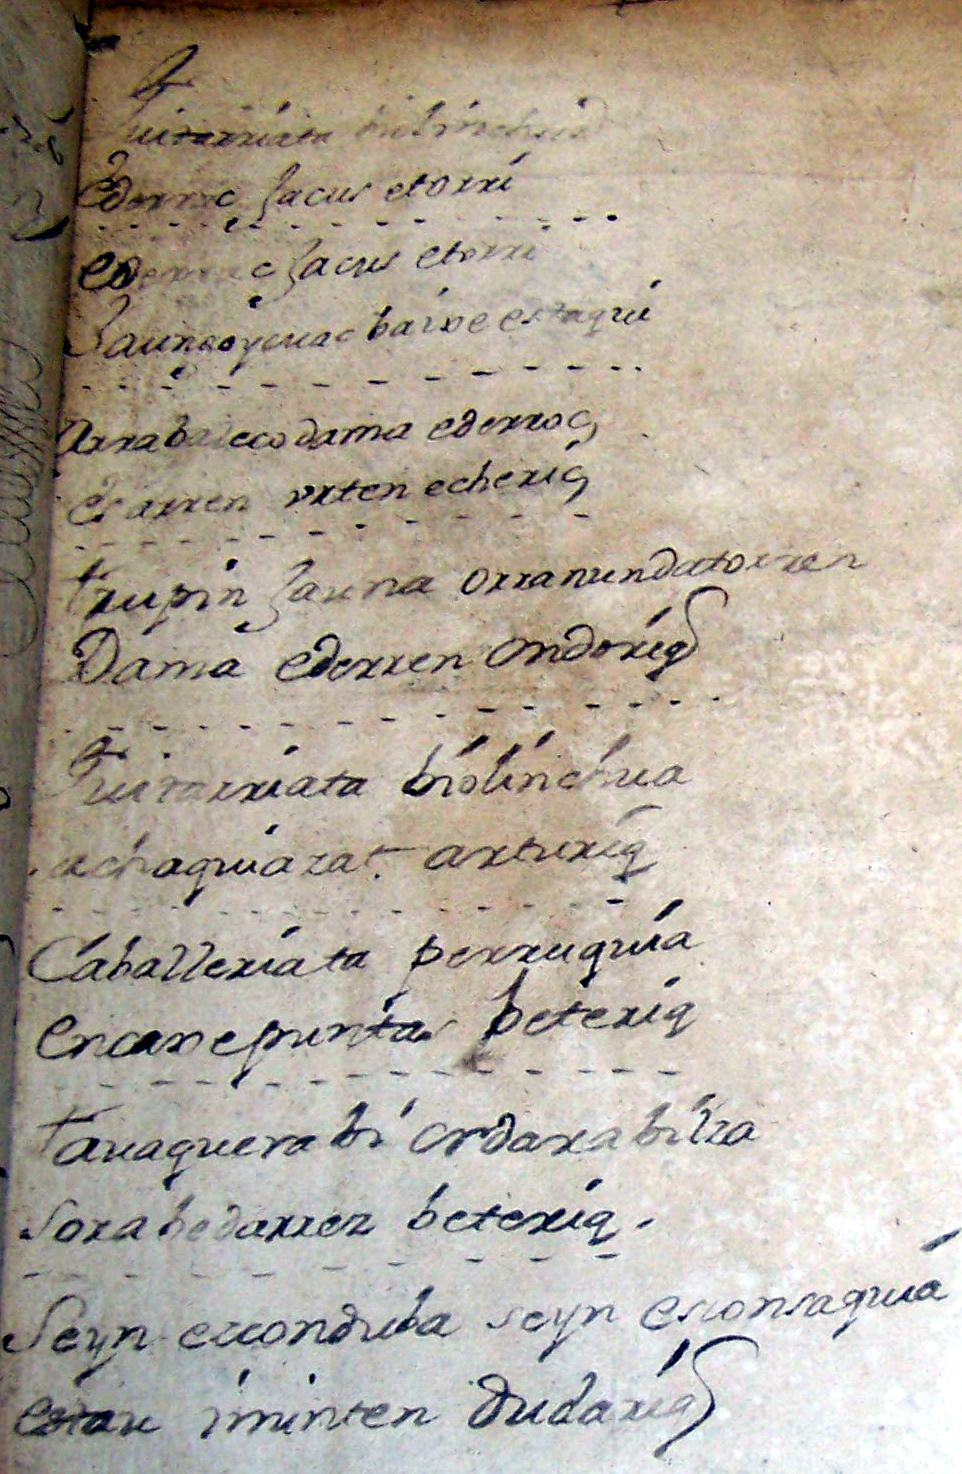 Guitarriata biolinchua
Ederrac Jacus etorri
Ederrac Jacus etorri
Jaungoycuac baixe estaqui
Arrabaleco dama ederroc,
Esarren vrten echeric,
Trupin Jauna orranundatorren
Dama ederren ondoriq
Guitarriata biolinchua
achaquiazat arturiq
Caballeriata perruquia
encaxe puntas beteriq
tauaquera bi ordaxabilza
sorabedarrez beteriq.
Seyn esconduba seyn esconsaquia
estau iminten dudariq